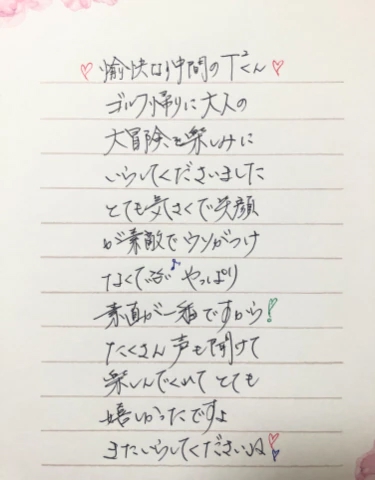 ♡愉快な仲間のT²くん♡
ゴルフ帰りに大人の
大冒険を楽しみに
いらしてくださいました
とても気さくで笑顔
が素敵でウソがつけ
なくて♪やっぱり
素直が一番ですから!
たくさん声も聞けて
楽しんでくれてとても
嬉しかったですよ
またいらしてくださいね!